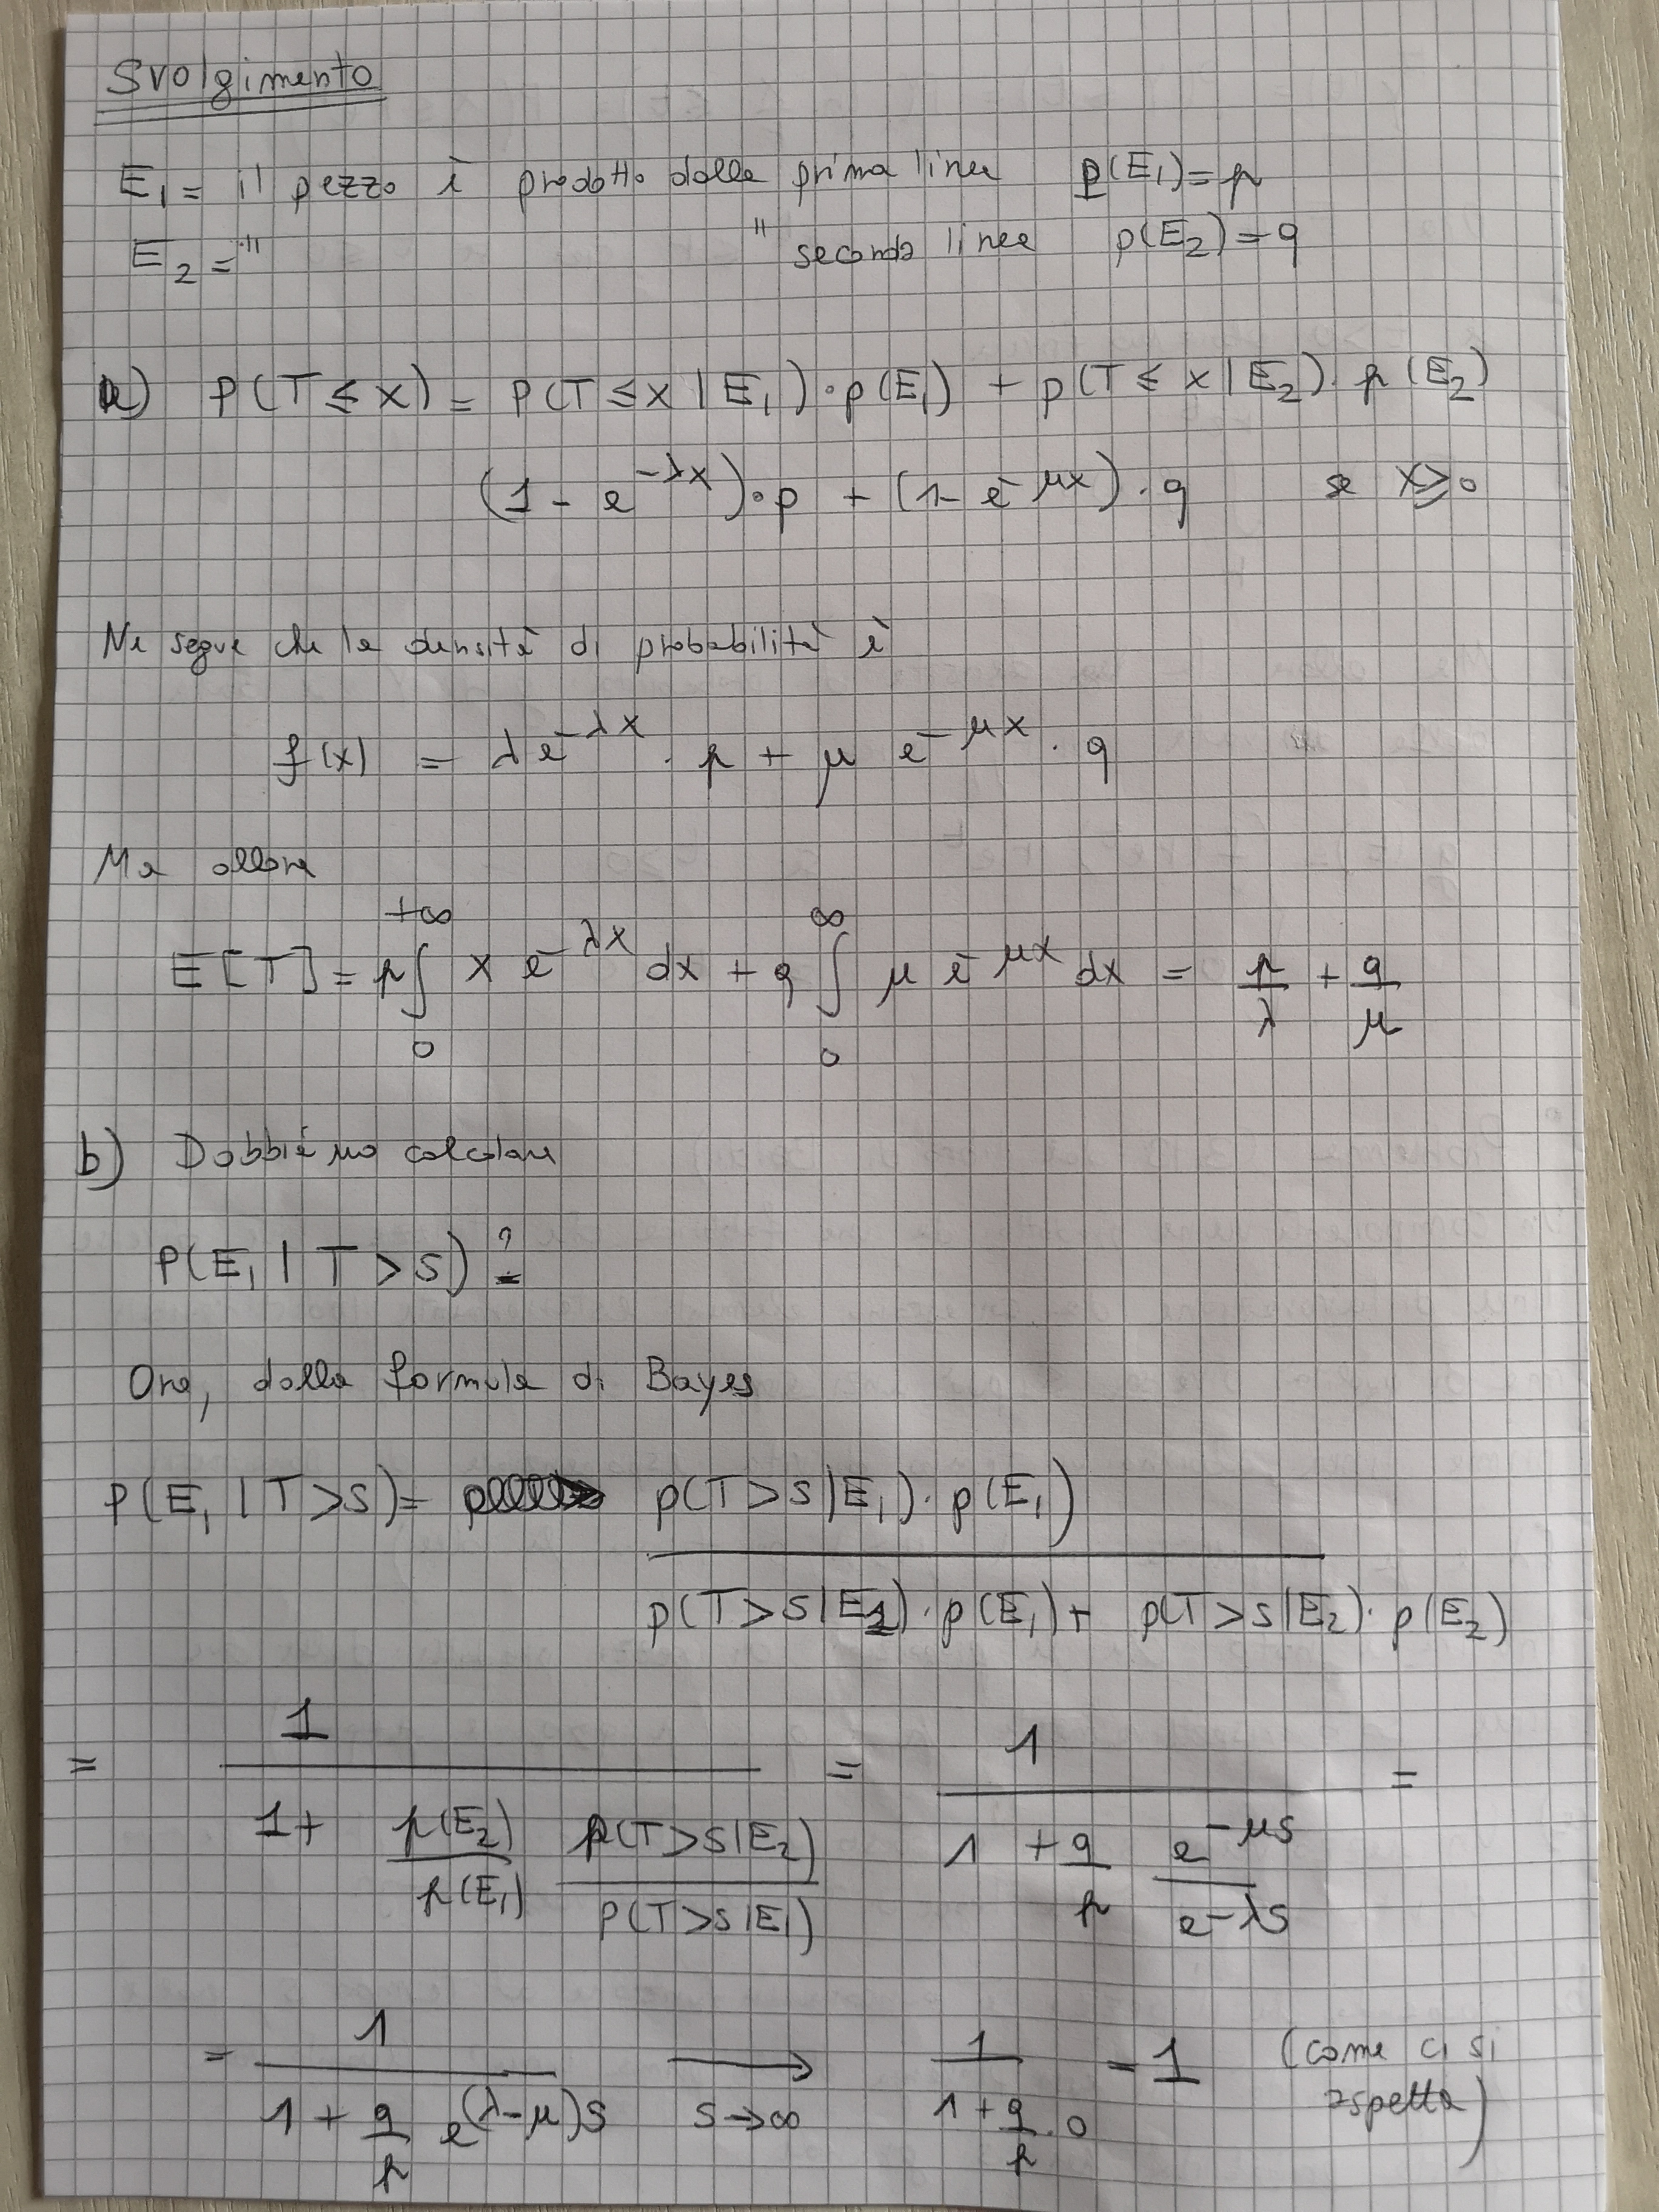 Svolgimento
E₁ = il pezzo è prodotto dalla prima linea p(E₁) = p
E₂ = " " seconda linea p(E₂) = q
a) P(T ≤ x) = P(T ≤ x | E₁) · p(E₁) + p(T ≤ x | E₂) · p(E₂)
(1 - e^{-λx}) · p + (1 - e^{-μx}) · q se x ≥ 0
Ne segue che la densità di probabilità è
f(x) = λ e^{-λx} · p + μ e^{-μx} · q
Ma allora
E[T] = p ∫₀^{+∞} x e^{-λx} dx + q ∫₀^{∞} μ e^{-μx} dx = p/λ + q/μ
b) Dobbiamo calcolare
P(E₁ | T > S) ?=
Ora, dalla formula di Bayes
P(E₁ | T > S) = p(T > S | E₁) · p(E₁) / p(T > S | E₁) · p(E₁) + p(T > S | E₂) · p(E₂)
= 1 / 1 + p(E₂)/p(E₁) p(T > S | E₂)/P(T > S | E₁) = 1 / 1 + q/p e^{-μS}/e^{-λS} =
= 1 / 1 + q/p e^{(λ-μ)S} ⟶ S→∞ 1 / 1 + q/p · 0 = 1 (come ci si
aspetta)